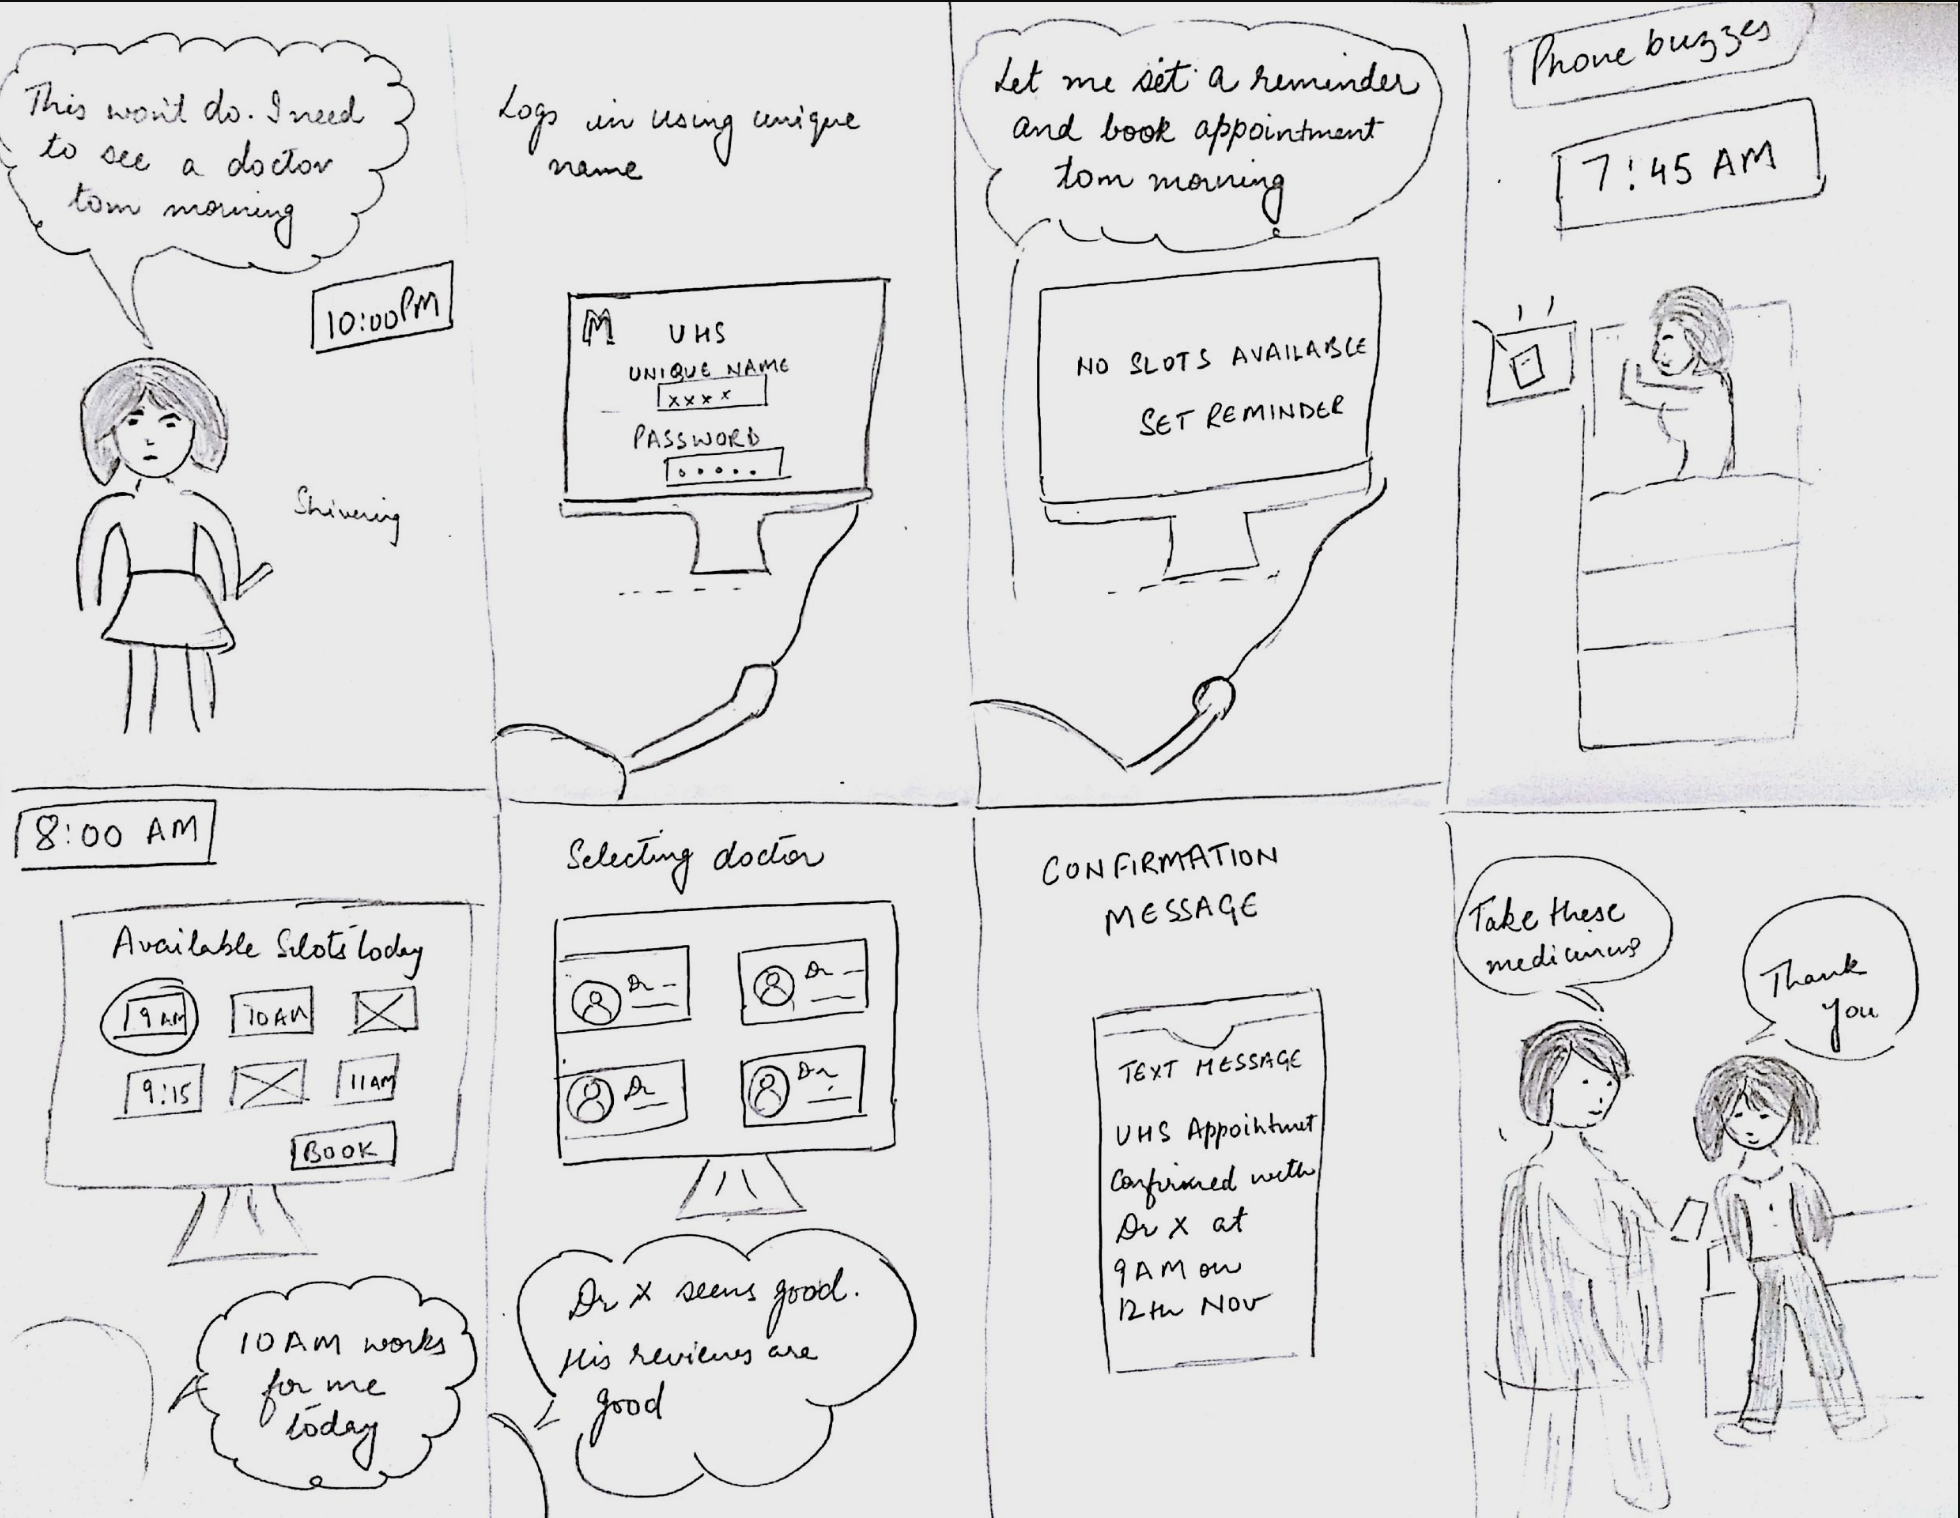 This won't do. I need
to see a doctor
tom morning
10:00 PM
Shivering
Logs in using unique
name
M
UHS
UNIQUE NAME
xxxx
PASSWORD
Let me set a reminder
and book appointment
tom morning
NO SLOTS AVAILABLE
SET REMINDER
Phone buzzes
7:45 AM
8:00 AM
Available Slots today
9 AM
10 AM
9:15
11 AM
BOOK
10 AM works
for me
today
Selecting doctor
Dr
Dr
Dr
Dr
Dr X seems good.
His reviews are
good
CONFIRMATION
MESSAGE
TEXT MESSAGE
UHS Appointment
Confirmed with
Dr X at
9 AM on
12th Nov
Take these
medicines
Thank
you